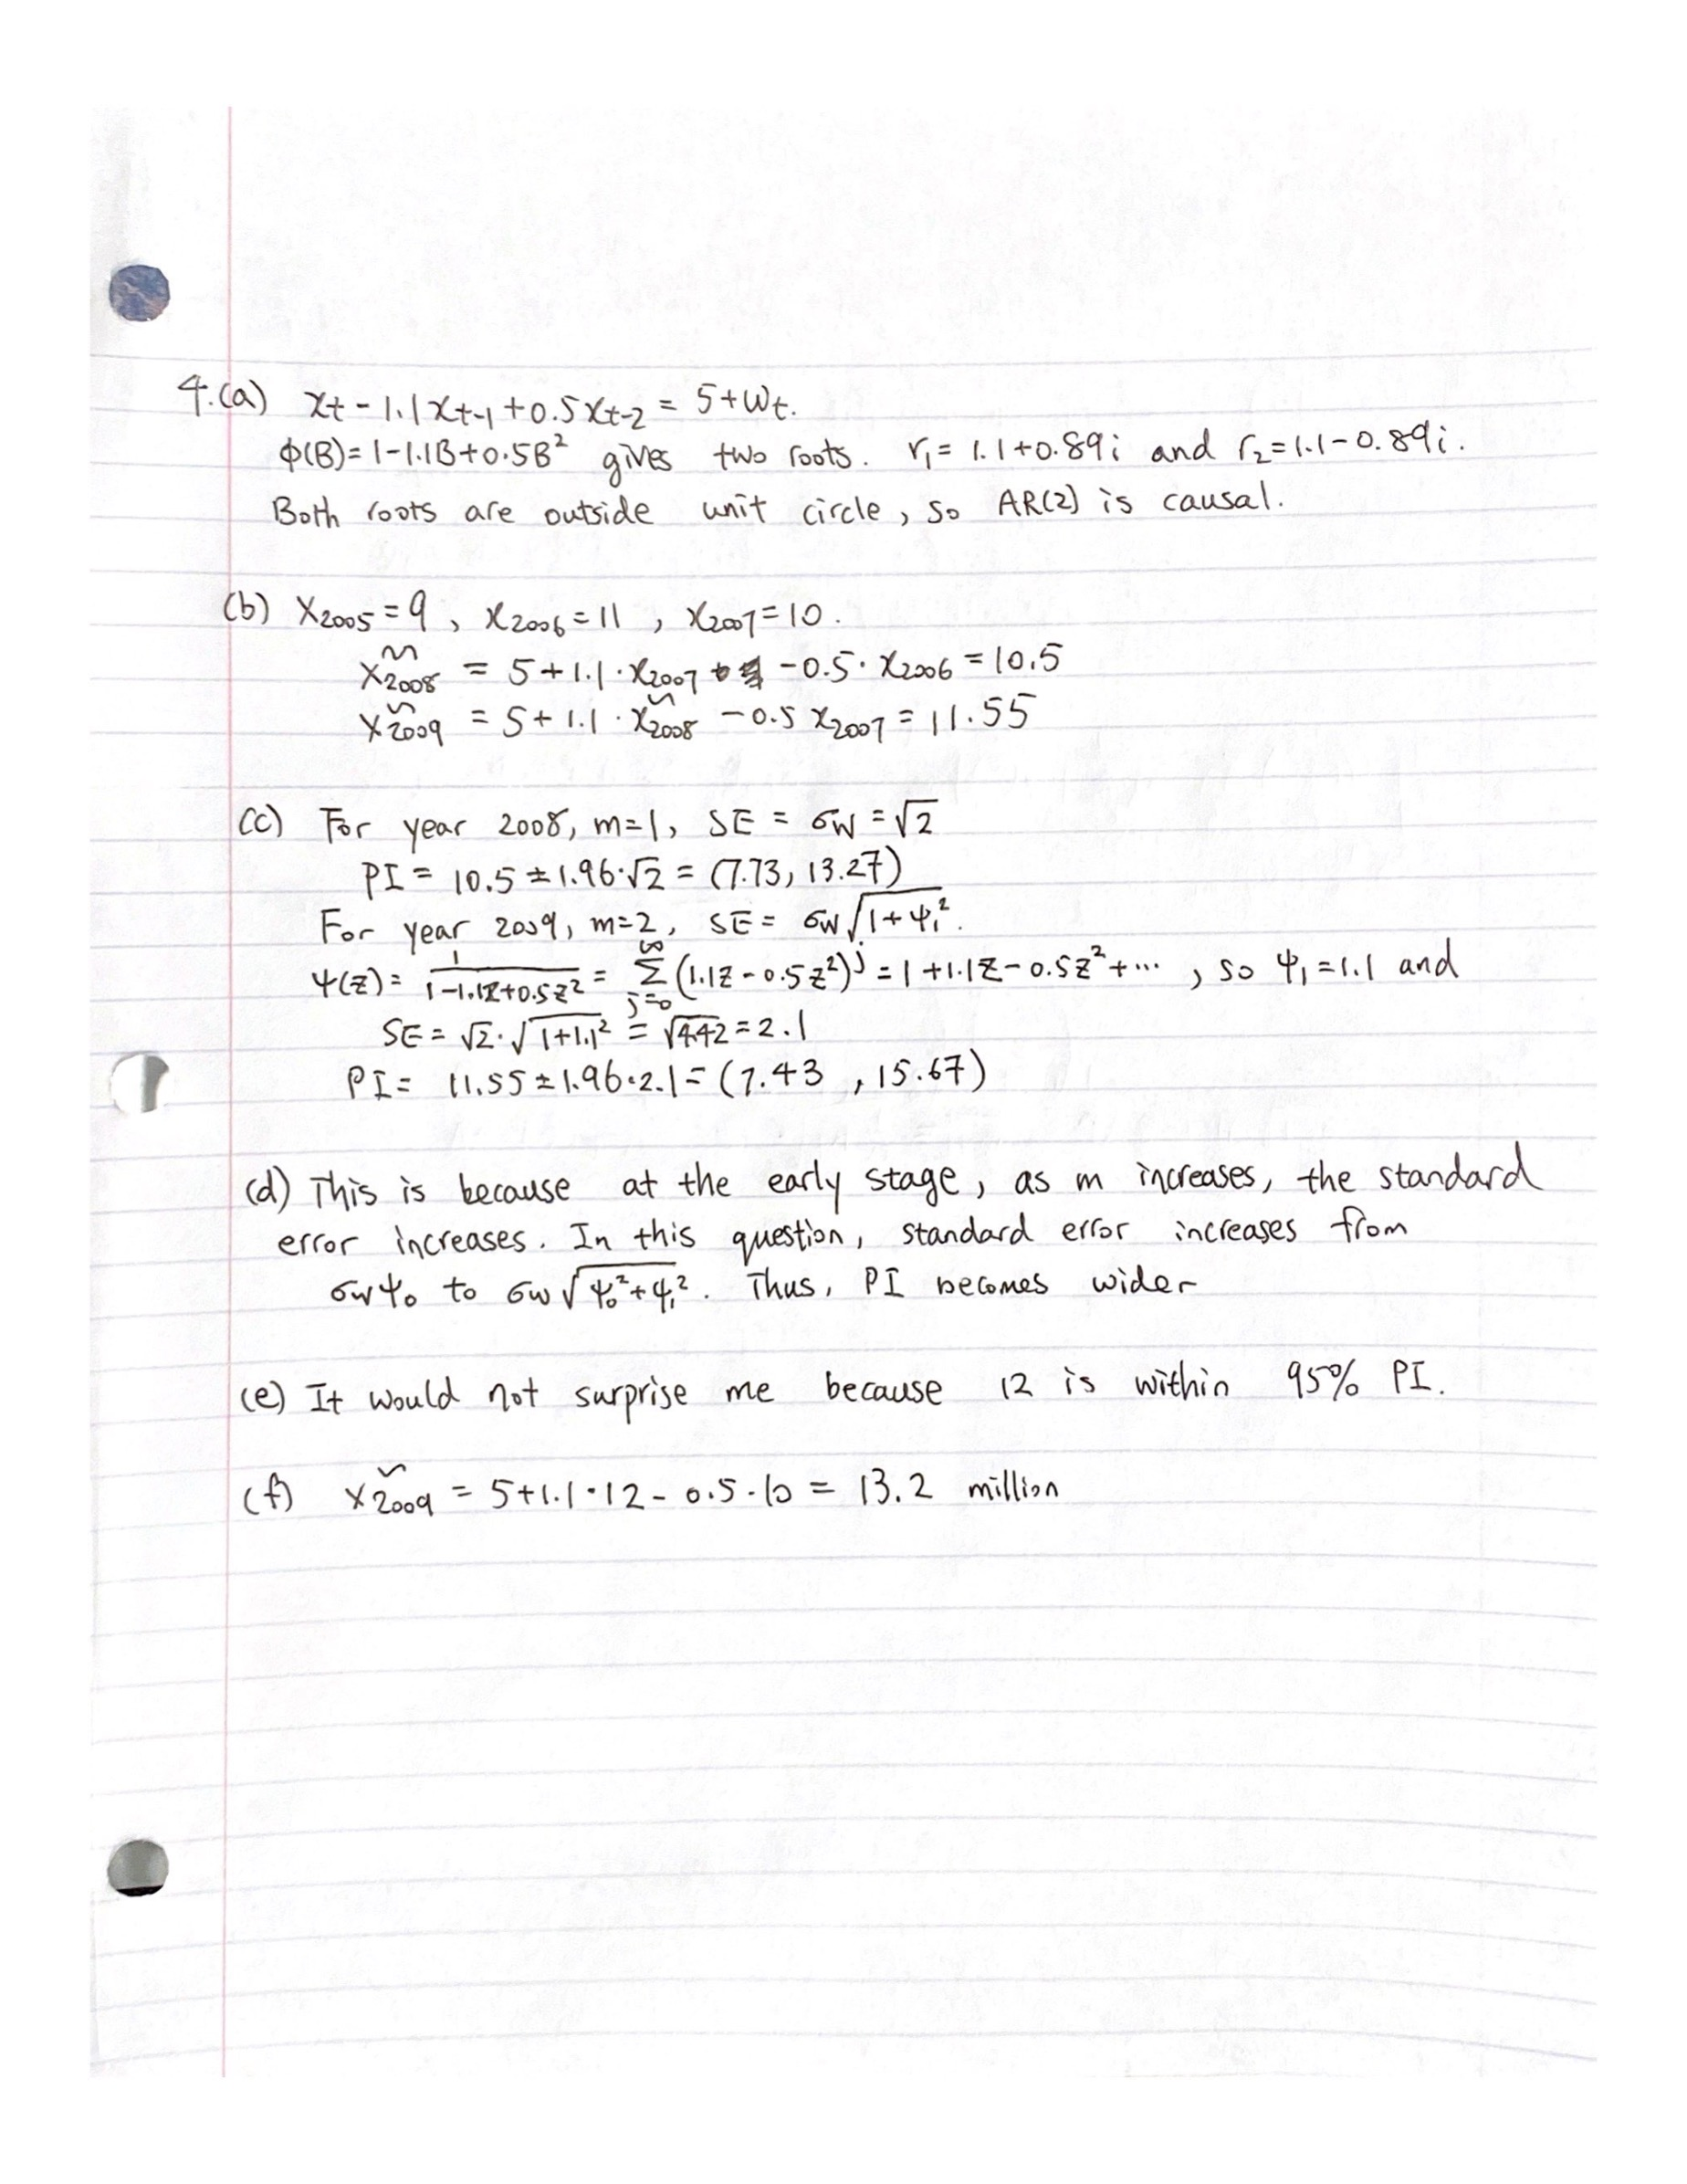 4.(a) xt - 1.1xt-1 + 0.5xt-2 = 5 + Wt.
ϕ(B) = 1 - 1.1B + 0.5B² gives two roots. r₁ = 1.1 + 0.89i and r₂ = 1.1 - 0.89i.
Both roots are outside unit circle, so AR(2) is causal.
(b) X2005 = 9, X2006 = 11, X2007 = 10.
X̃2008 = 5 + 1.1·X2007 - 0.5·X2006 = 10.5
X̃2009 = 5 + 1.1·X̃2008 - 0.5 X2007 = 11.55
(c) For year 2008, m=1, SE = σw = √2
PI = 10.5 ± 1.96·√2 = (7.73, 13.27)
For year 2009, m=2, SE = σw√(1+ψ₁²).
ψ(z) = 1/(1-1.1z+0.5z²) = ∑_{j=0}^{∞} (1.1z - 0.5z²)^j = 1 + 1.1z - 0.5z² + ⋯, so ψ₁ = 1.1 and
SE = √2·√(1+1.1²) = √4.42 = 2.1
PI = 11.55 ± 1.96·2.1 = (7.43, 15.67)
(d) This is because at the early stage, as m increases, the standard
error increases. In this question, standard error increases from
σwψ₀ to σw√(ψ₀²+ψ₁²). Thus, PI becomes wider
(e) It would not surprise me because 12 is within 95% PI.
(f) X̃2009 = 5 + 1.1·12 - 0.5·10 = 13.2 million